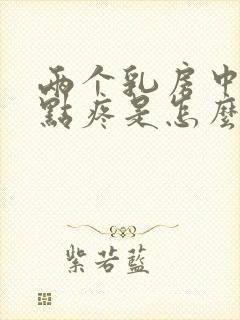 兩个乳房中
點疼是怎麼
紫若藍